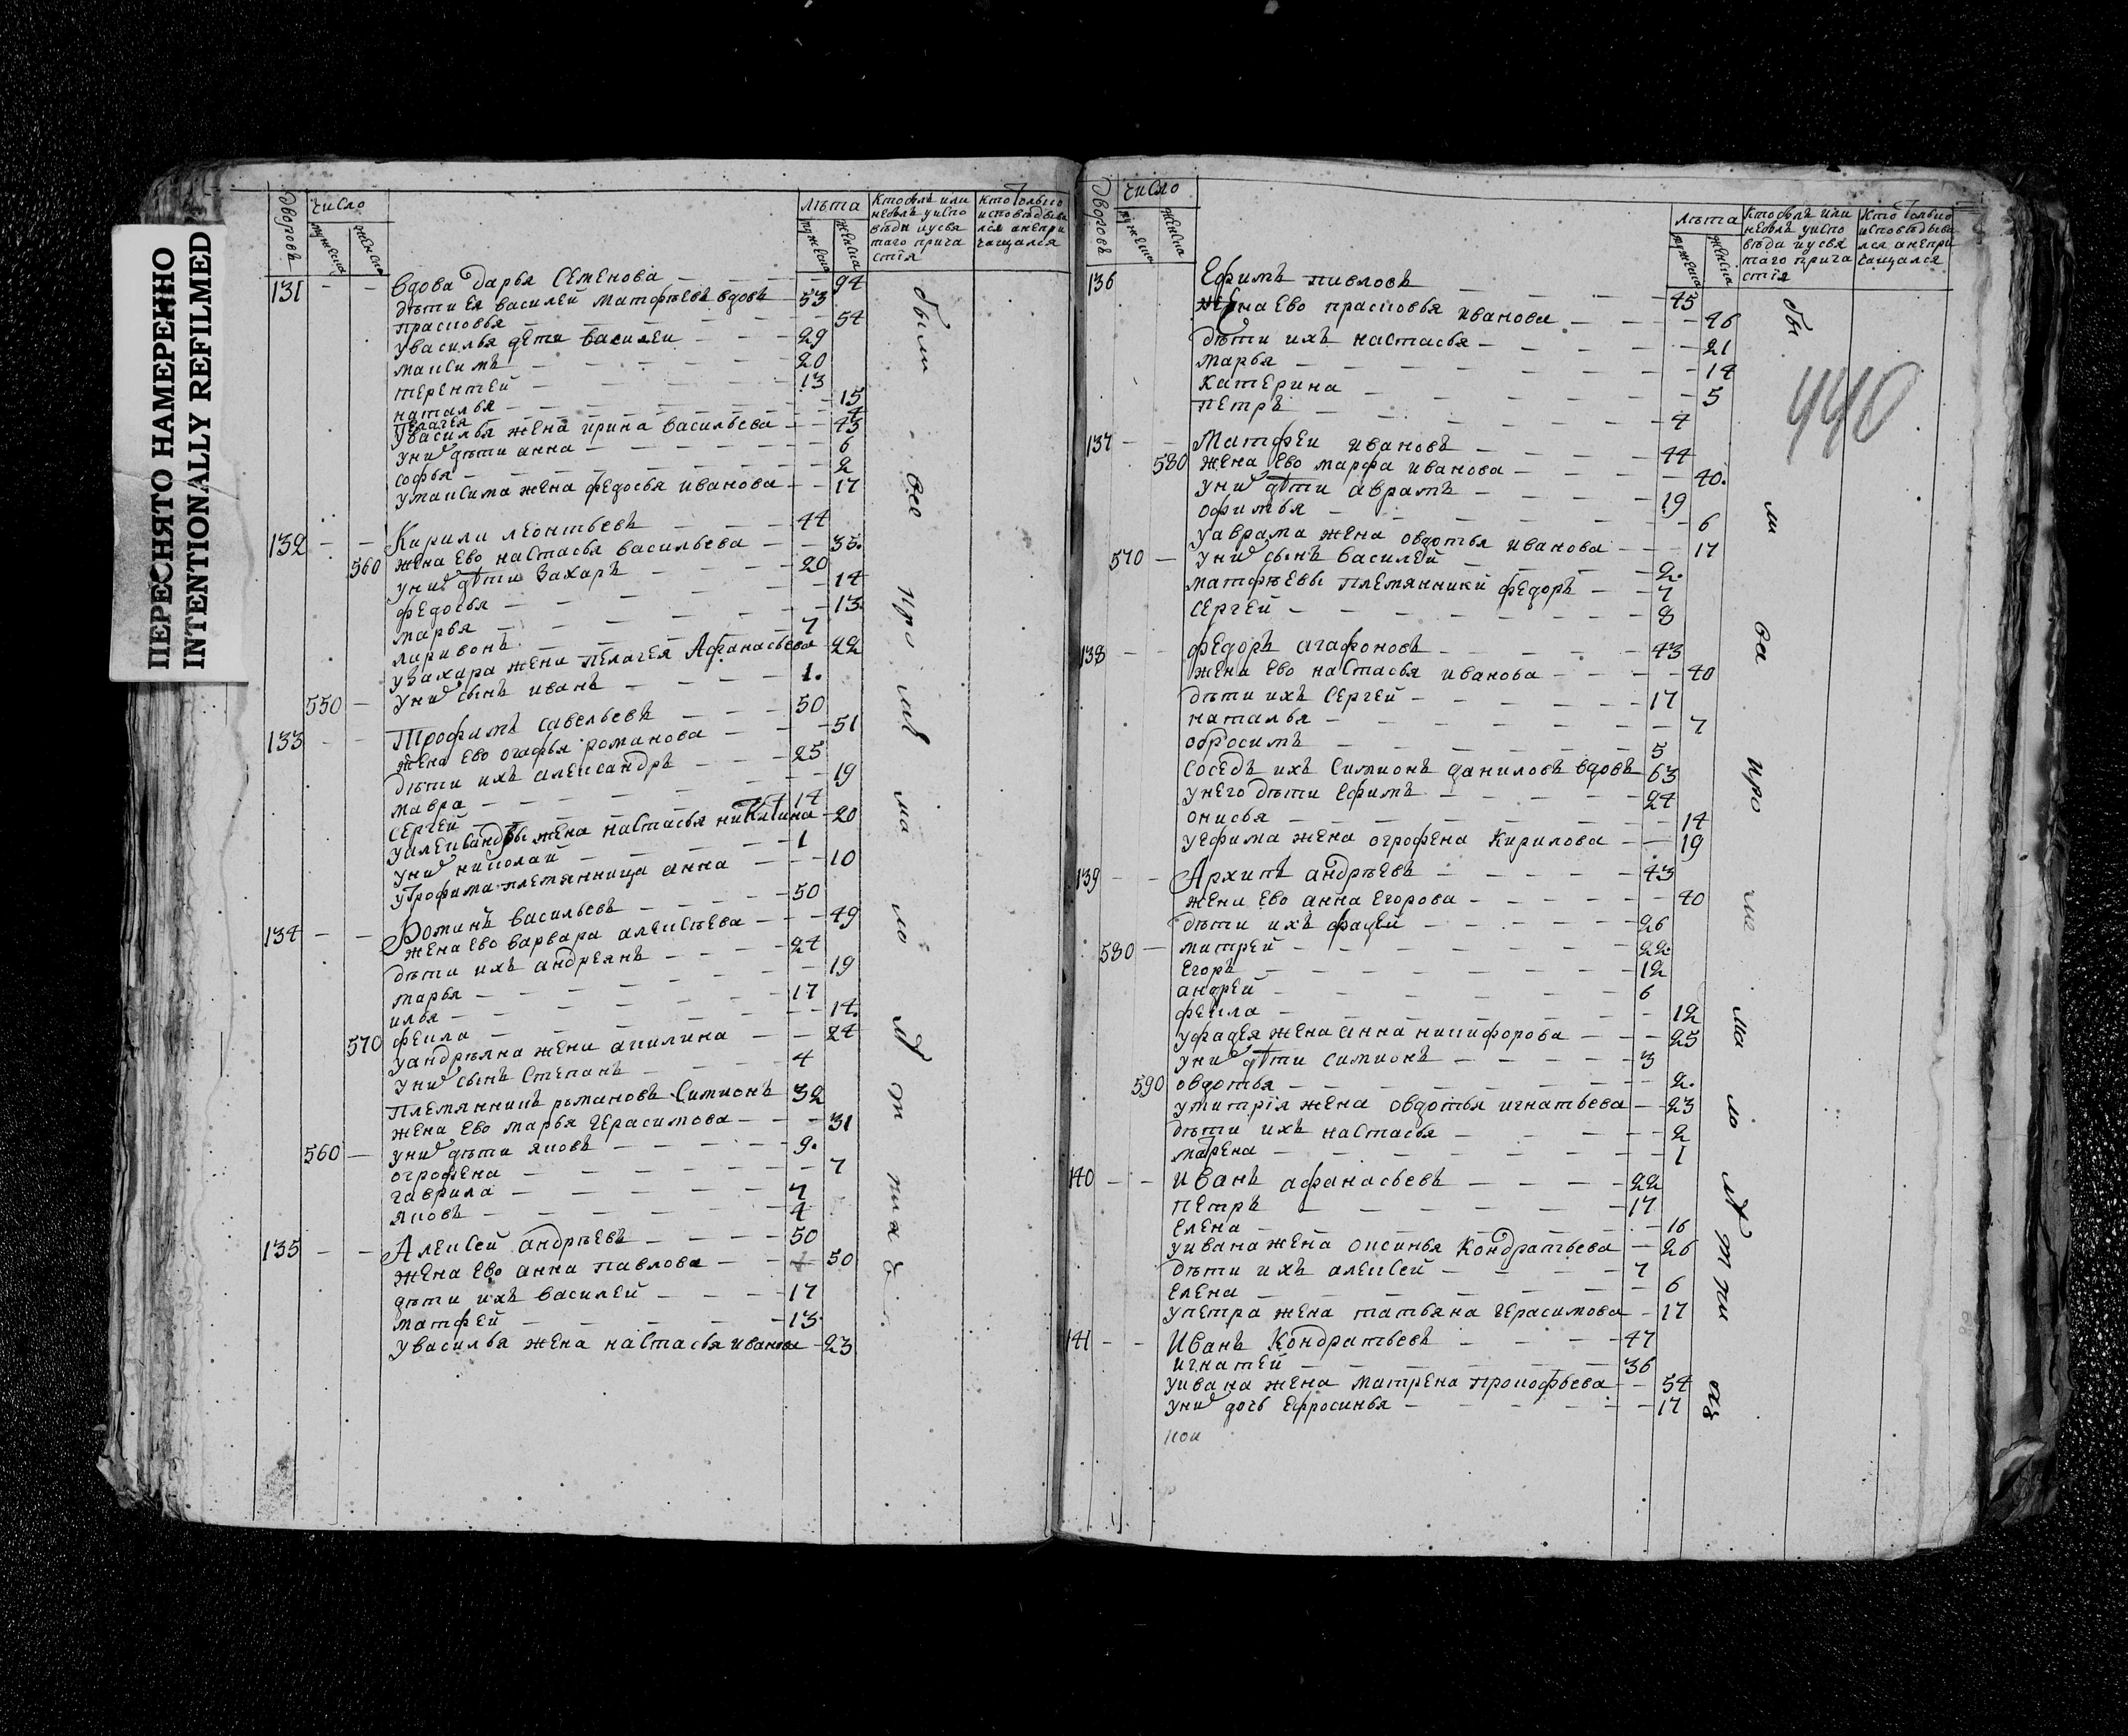 ПЕРЕСНЯТО НАМЕРЕННО
INTENTIONALLY REFILMED
дворовъ число лѣта Кто былъ или Кто только
мужеска женска мужеска женска небылъ уиспо исповѣдыва
вѣди иусвя лся анепри
таго прича чащался
стїя
131 вдова дарья Семенова 94
дѣти ея василей матфѣевъ вдовъ 53
прасковья 54
увасилья дети василеи 29
максимъ 20
терентей 13
наталья 15
пелагея 4
увасилья жена ирина васильева 43
униᵡ дѣти анна 6
софья 2
умаксима жена федосья иванова 17
132 Кирили леонтьевъ 44
560 жена ево настасья васильева 35.
униᵡ дѣти захаръ 20
федосья 14
марья 13.
ларивонъ 7
узахара жена пелагея Афанасьева 22
550 униᵡ сынъ иванъ 1.
133 Трофимъ савельевъ 50
жена ево огафья романова 51
дѣти ихъ александръ 25
мавра 19
сергей 14
уалександры жена настасья никитина 20
униᵡ николаи 1
утрофима племянница анна 10
134 Фоминъ васильевъ 50
жена ево варвара алексѣева 49
дѣти ихъ андреянъ 24
марья 19
илья 17
570 фекла 14.
уандрѣяна жена акилина 24
униᵡ сынъ степанъ 4
племянникъ романовъ Симионъ 32
жена ево марья герасимова 31
560 униᵡ дѣти яковъ 9.
огрофена 7
гаврила 7
яковъ 4
135 Алексей андрѣевъ 50
жена ево анна павлова 50
дѣти ихъ василей 17
матфей 13.
увасилья жена настасья иванова 23
были все кро ме ма ло лѣ т нихъ
дворовъ число лѣта Кто былъ или Кто только
мужеска женска мужеска женска небылъ уиспо исповѣдыва
вѣди иусвя лся анепри
таго прича чащался
стїя
440
136 Ефимъ павловъ 45
жена ево прасковья иванова 46
дѣти ихъ настасья 21
марья 14
катерина 5
петръ 4
137 Матфеи ивановъ 44
580 жена ево марфа иванова 40.
униᵡ дѣти аврамъ 19
офимья 6
уаврама жена овдотья иванова 17
570 униᵡ сынъ василей 2.
матфѣевы племянники федоръ 7
сергей 8
138 федоръ агафоновъ 43
жена ево настасья иванова 40
дѣти ихъ сергей 17
наталья 7
обросимъ 5
соседъ ихъ симионъ даниловъ вдовъ 63
унего дѣти ефимъ 24
онисья 14
уефима жена огрофена кирилова 19
139 Архипъ андрѣевъ 43
жена ево анна егорова 40
дѣти ихъ фадей 26
580 митрей 22.
егоръ 12
андрей 6
фекла 12
уфадея жена анна никифорова 25
униᵡ дѣти симионъ 3
590 овдотья 2.
умитрїя жена овдотья игнатьева 23
дѣти ихъ настасья 2
марена 1
140 Иванъ афанасьевъ 22
петръ 17
елена 16
уивана жена оксинья кондратьева 26
дѣти ихъ алексей 7
елена 6
упетра жена татьяна герасимова 17
141 Иванъ Кондратьевъ 47
игнатей 36
уивана жена матрена прокофьева 54
униᵡ дочь ефросинья 17